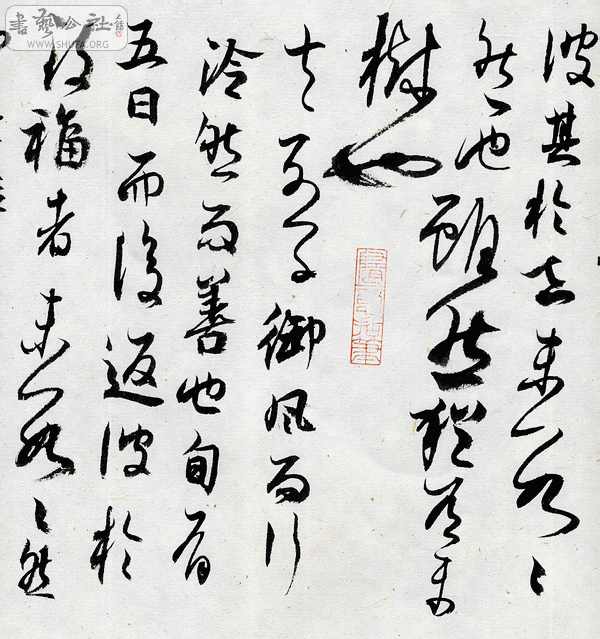 書藝公社
WWW.SHUFA.ORG
彼其於世未數〻
然也雖然猶有未
樹也
夫列子御風而行
泠然而善也旬有
五日而後返彼於
致福者未數〻然